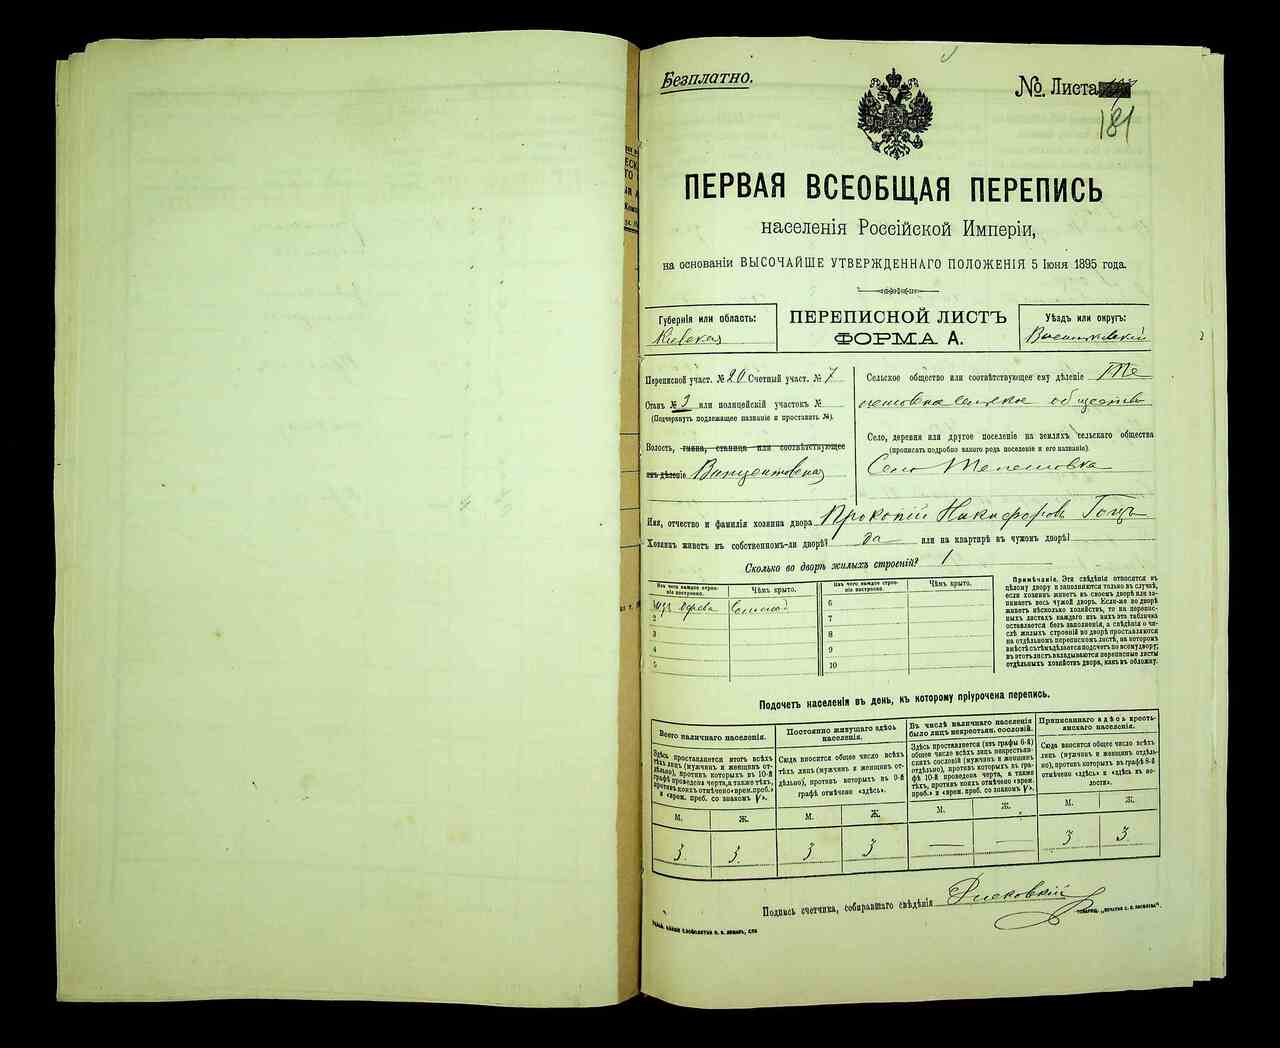 Безплатно.
№. Листа
181
ПЕРВАЯ ВСЕОБЩАЯ ПЕРЕПИСЬ
населенія Россійской Имперіи,
на основаніи ВЫСОЧАЙШЕ УТВЕРЖДЕННАГО ПОЛОЖЕНІЯ 5 Іюня 1895 года.
Губернія или область:
Кіевская
ПЕРЕПИСНОЙ ЛИСТЪ
ФОРМА А.
Уѣздъ или округъ:
Васильковскій
Переписной участ. № 20 Счетный участ. № 7
Станъ № 3 или полицейскій участокъ №
(Подчеркнуть подлежащее названіе и проставить №).
Волость, гмина, станица или соотвѣтствующее
имъ дѣленіе Винцентовская
Сельское общество или соотвѣтствующее ему дѣленіе Те
лешовка сельское общество
Село, деревня или другое поселеніе на земляхъ сельскаго общества
(прописать подробно какого рода поселеніе и его названіе).
Село Телешовка
Имя, отчество и фамилія хозяина двора Прокопій Никифоровъ Гоцъ
Хозяинъ живетъ въ собственномъ-ли дворѣ? да или на квартирѣ въ чужомъ дворѣ?
Сколько во дворѣ жилыхъ строеній? 1
Изъ чего каждое строеніе построено.
Чѣмъ крыто.
Изъ чего каждое строеніе построено.
Чѣмъ крыто.
изъ дерева Соломой
2
3
4
5
6
7
8
9
10
Примѣчаніе. Эти свѣдѣнія относятся къ
цѣлому двору и заполняются только въ случаѣ,
если хозяинъ живетъ въ своемъ дворѣ или занимаетъ
весь чужой дворъ. Если-же во дворѣ
живетъ нѣсколько хозяйствъ, то на переписныхъ
листахъ каждаго изъ нихъ эта табличка
оставляется безъ заполненія, а свѣдѣнія о числѣ
жилыхъ строеній во дворѣ проставляются
на отдѣльномъ переписномъ листѣ, на которомъ
вмѣстѣ съ тѣмъ дѣлается подсчетъ по всему двору;
въ этотъ листъ вкладываются переписные листы
отдѣльныхъ хозяйствъ двора, какъ въ обложку.
Подсчетъ населенія въ день, къ которому пріурочена перепись.
Всего наличнаго населенія.
Здѣсь проставляется итогъ всѣхъ
тѣхъ лицъ (мужчинъ и женщинъ отдѣльно),
противъ которыхъ въ 10-й
графѣ проведена черта, а также тѣхъ,
противъ коихъ отмѣчено «врем. преб.»
и «врем. преб. со знакомъ V».
Постоянно живущаго здѣсь
населенія.
Сюда вносится общее число всѣхъ
тѣхъ лицъ (мужчинъ и женщинъ отдѣльно),
противъ которыхъ въ 9-й
графѣ отмѣчено «здѣсь».
Въ числѣ наличнаго населенія
было лицъ некрестьян. сословій.
Здѣсь проставляется (изъ графы 6-й)
общее число всѣхъ лицъ некрестьянскихъ
сословій (мужчинъ и женщинъ
отдѣльно), противъ которыхъ въ графѣ
10-й проведена черта, а также
тѣхъ, противъ коихъ отмѣчено «врем.
преб.» и «врем. преб. со знакомъ V».
Приписаннаго здѣсь крестьянскаго
населенія.
Сюда вносится общее число всѣхъ
лицъ (мужчинъ и женщинъ отдѣльно),
противъ которыхъ въ графѣ 8-й
отмѣчено «здѣсь» и «здѣсь въ волости».
М. Ж. М. Ж. М. Ж. М. Ж.
3 3 3 3 — — 3 3
Подпись счетчика, собиравшаго свѣдѣнія